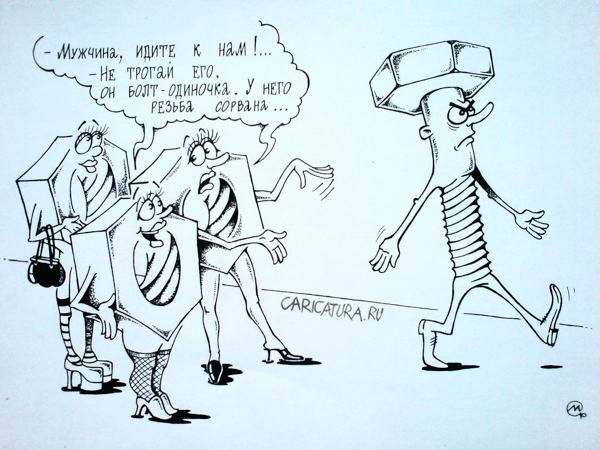 - Мужчина, идите к нам!...
- Не трогай его,
он болт-одиночка. У него
резьба сорвана...
CARICATURA.RU